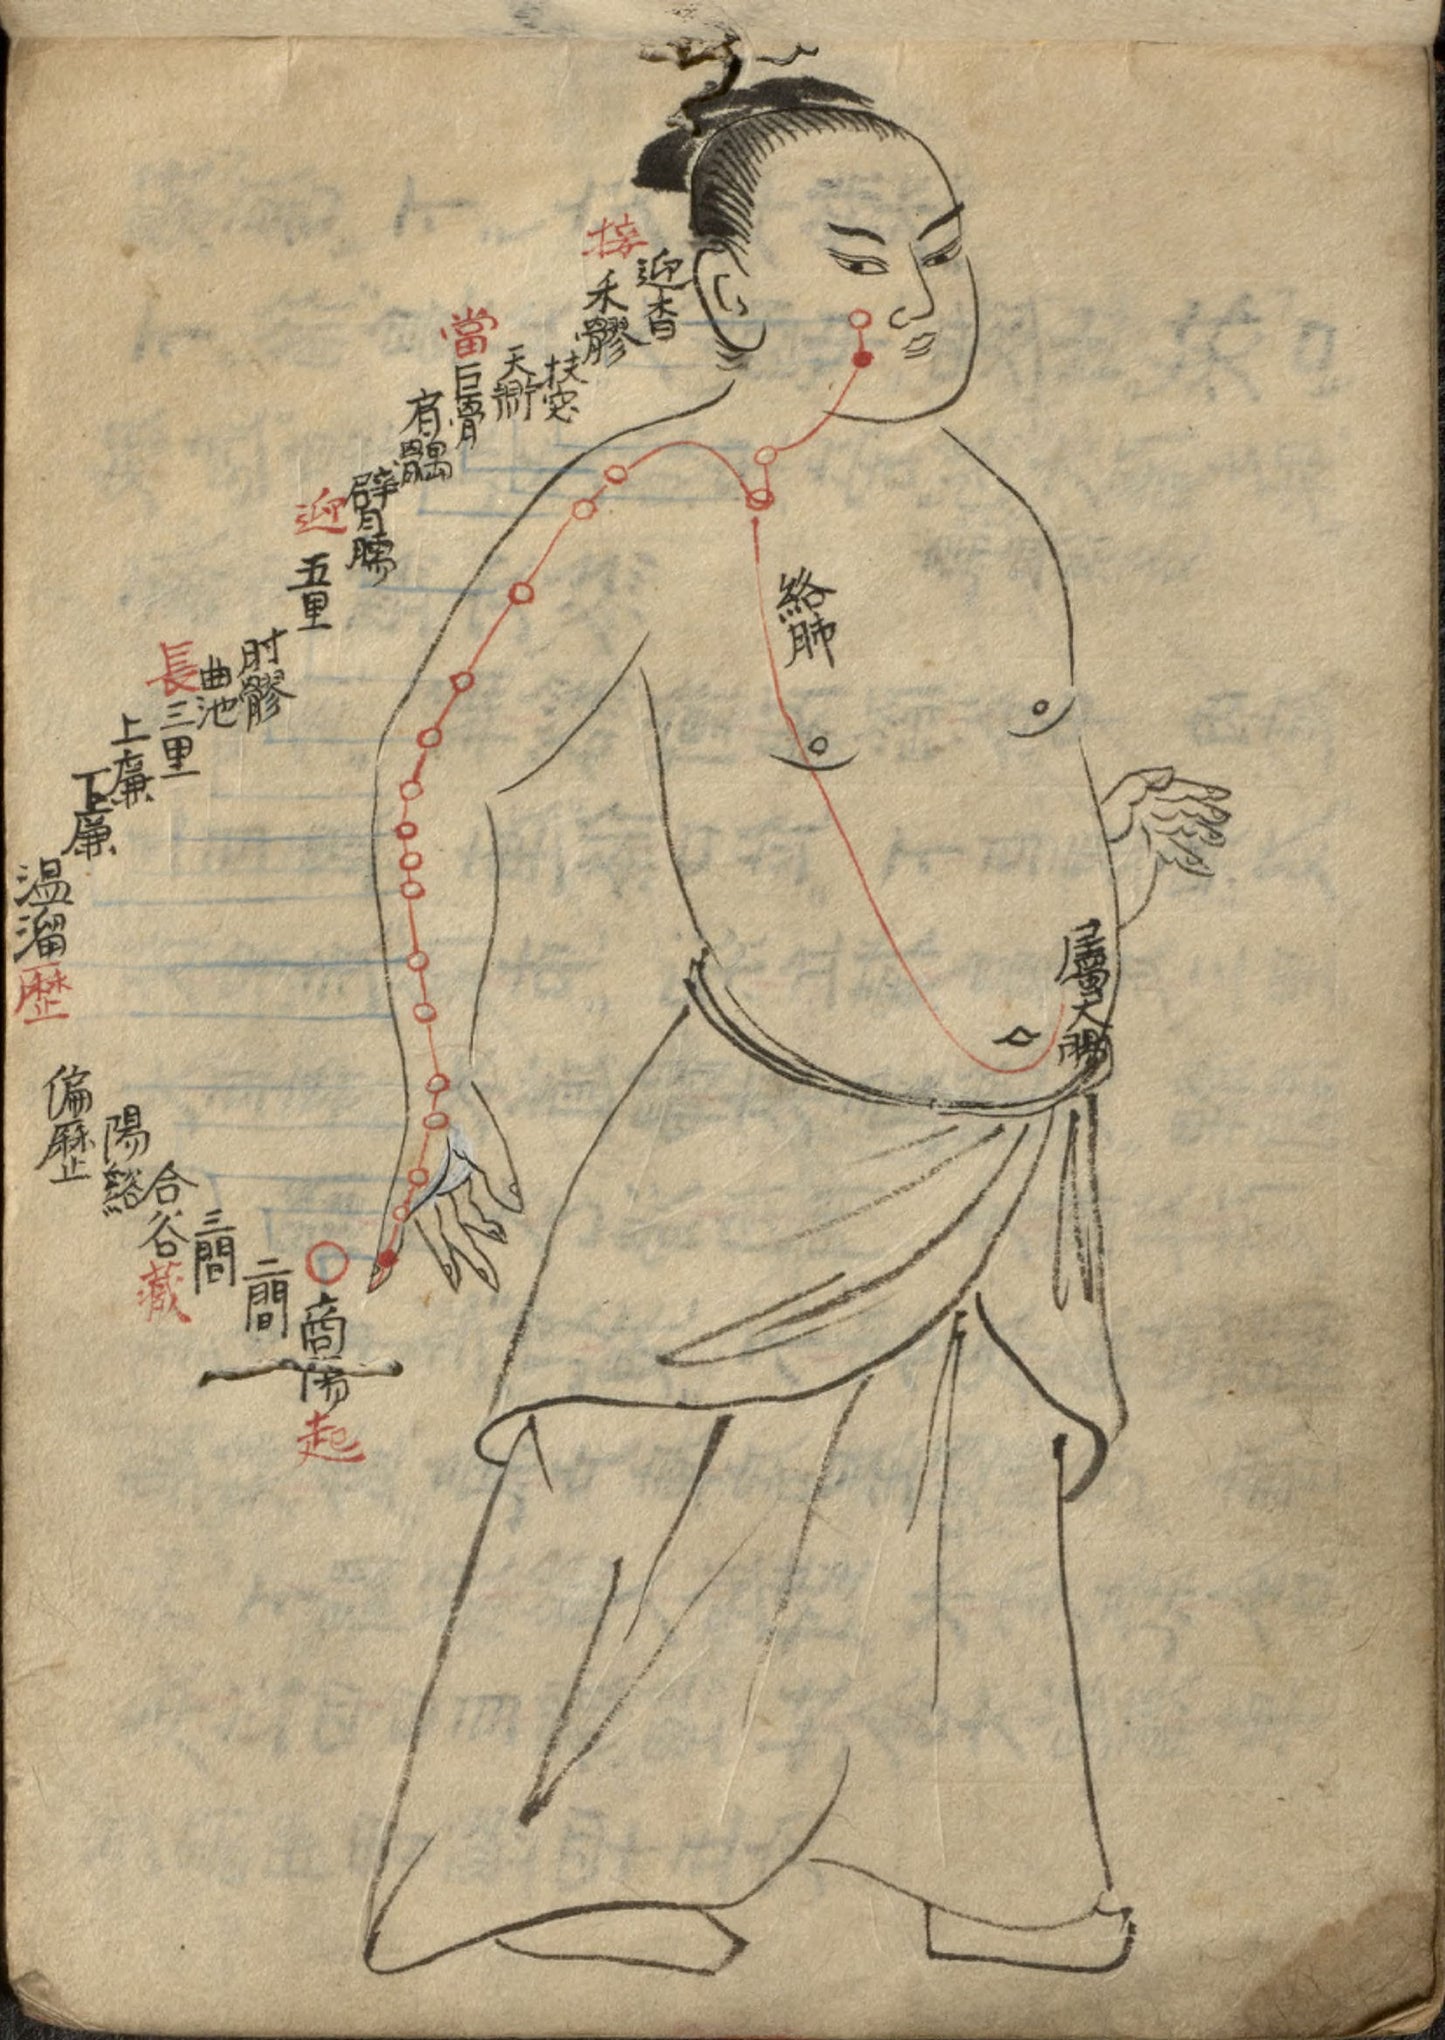 接
禾髎
迎香
當
巨骨
天
肩髃
臂臑
迎
五里
絡肺
肘髎
曲池
長
三里
上廉
下廉
温溜
歷
屬大腸
偏歷
陽谿
合谷
藏
三間
二間
商陽
起